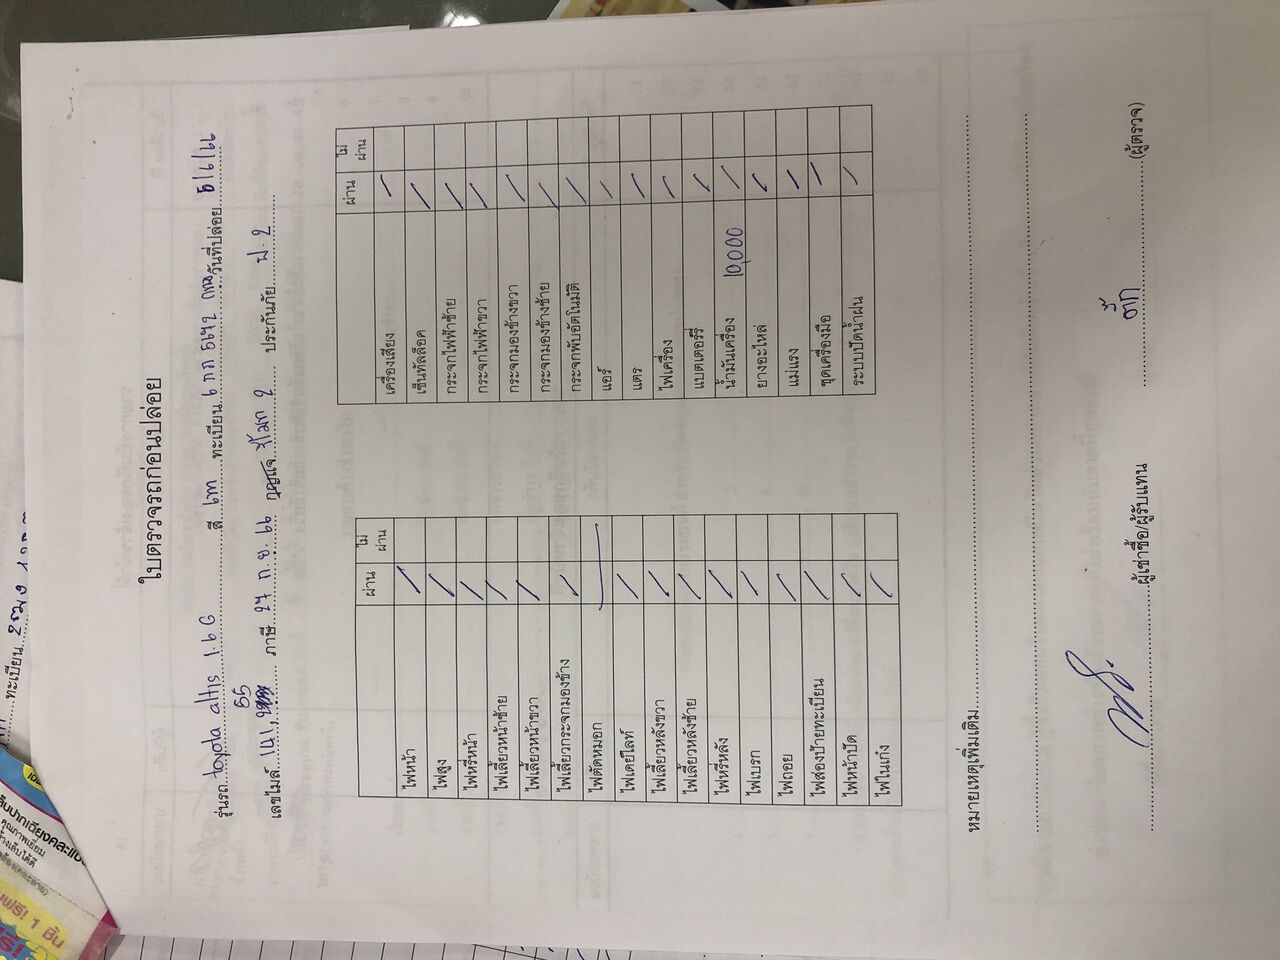 ใบตรวจรถก่อนปล่อย
รุ่นรถ toyota altis 1.6 G สี เทา ทะเบียน 6 กก 5672 กทม วันที่ปล่อย 5/6/66
55
เลขไมล์ 141, ภาษี 27 ก.ย. 66 กุญแจ รีโมท 2 ประกันภัย ป. 2
ผ่าน ไม่ผ่าน
ไฟหน้า /
ไฟสูง /
ไฟหรี่หน้า /
ไฟเลี้ยวหน้าซ้าย /
ไฟเลี้ยวหน้าขวา /
ไฟเลี้ยวกระจกมองข้าง /
ไฟตัดหมอก
ไฟเดย์ไลท์ /
ไฟเลี้ยวหลังขวา /
ไฟเลี้ยวหลังซ้าย /
ไฟหรี่หลัง /
ไฟเบรก /
ไฟถอย /
ไฟสองป้ายทะเบียน /
ไฟหน้าปัด /
ไฟในเก๋ง /
ผ่าน ไม่ผ่าน
เครื่องเสียง /
เซ็นทัลล็อค /
กระจกไฟฟ้าซ้าย /
กระจกไฟฟ้าขวา /
กระจกมองข้างขวา /
กระจกมองข้างซ้าย /
กระจกพับอัตโนมัติ /
แอร์ /
แตร /
ไฟเครื่อง /
แบตเตอร์รี่ /
น้ำมันเครื่อง 10,000 /
ยางอะไหล่ /
แม่แรง /
ชุดเครื่องมือ /
ระบบปัดน้ำฝน /
หมายเหตุเพิ่มเติม
ผู้เช่าซื้อ/ผู้รับแทน
ตั๊ก (ผู้ตรวจ)
ทะเบียน